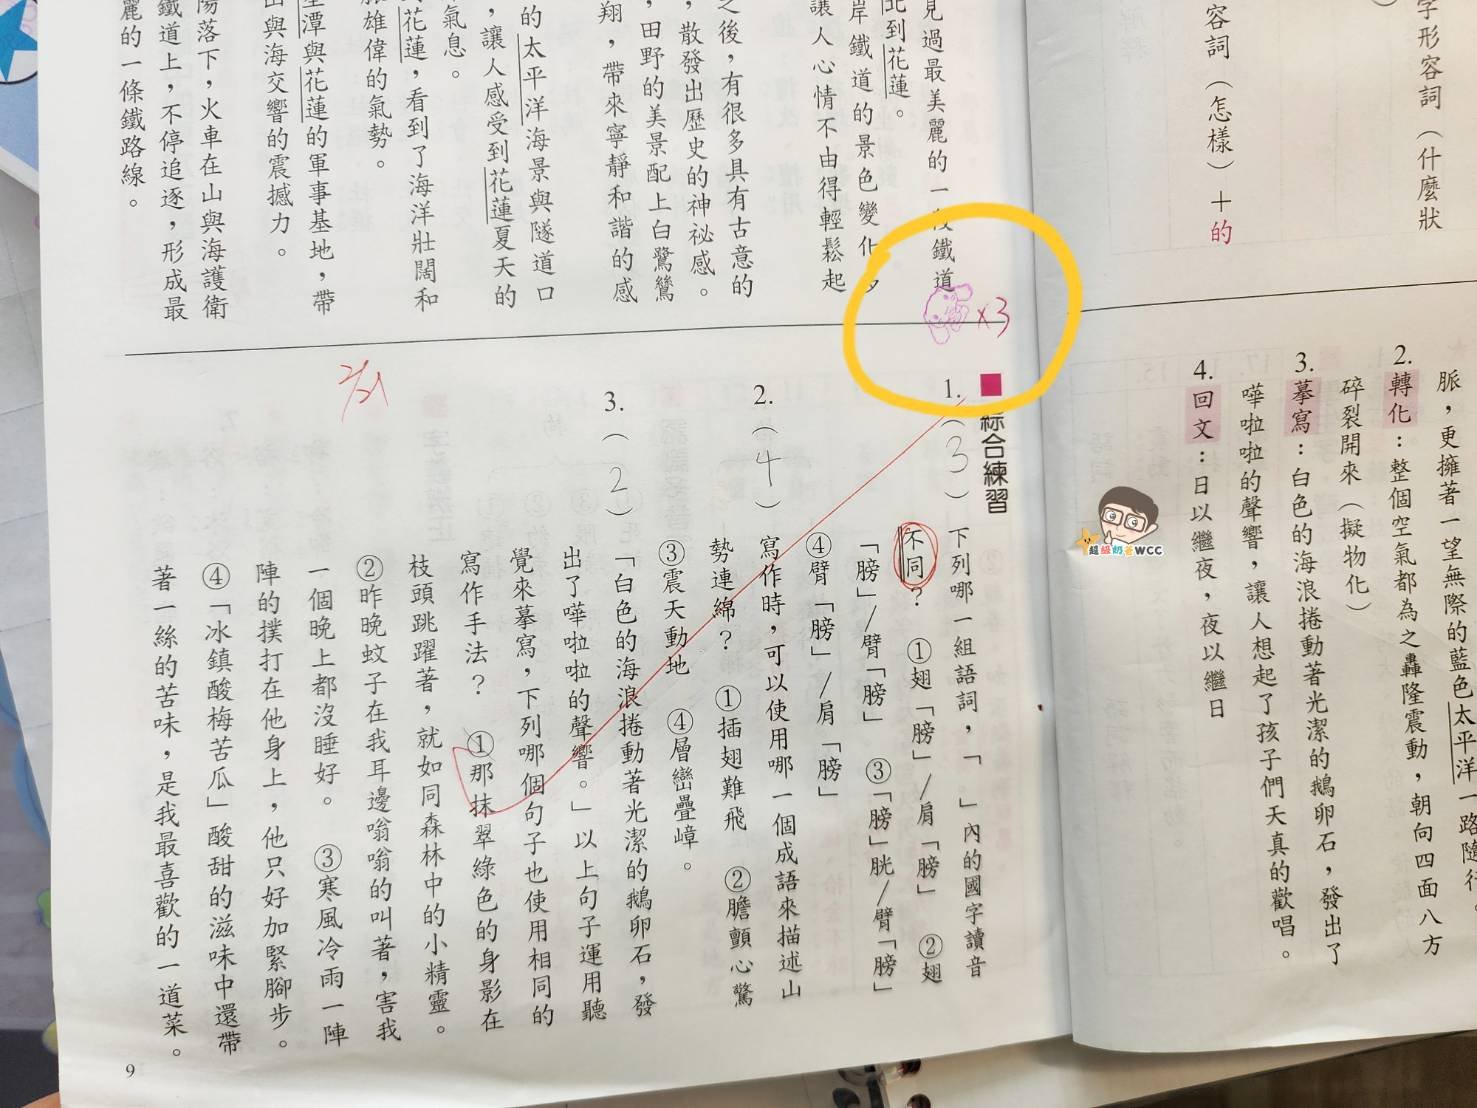 字形容詞（什麼狀
容詞（怎樣）＋的
脈，更擁著一望無際的藍色太平洋一路隨行。
2.轉化：整個空氣都為之轟隆震動，朝向四面八方
碎裂開來（擬物化）
3.摹寫：白色的海浪捲動著光潔的鵝卵石，發出了
嘩啦啦的聲響，讓人想起了孩子們天真的歡唱。
4.回文：日以繼夜，夜以繼日
超級奶爸WCC
見過最美麗的一段鐵道
岸鐵道的景色變化多
北到花蓮。
讓人心情不由得輕鬆起
之後，有很多具有古意的
，散發出歷史的神祕感。
，田野的美景配上白鷺鷥
翔，帶來寧靜和諧的感
的太平洋海景與隧道口
，讓人感受到花蓮夏天的
氣息。
花蓮，看到了海洋壯闊和
雄偉的氣勢。
潭與花蓮的軍事基地，帶
山與海交響的震撼力。
陽落下，火車在山與海護衛
鐵道上，不停追逐，形成最
麗的一條鐵路線。
x3
綜合練習
1.（3）下列哪一組語詞，「　」內的國字讀音
不同？①翅「膀」/肩「膀」②翅
「膀」/臂「膀」③「膀」胱/臂「膀」
④臂「膀」/肩「膀」
2.（4）寫作時，可以使用哪一個成語來描述山
勢連綿？①插翅難飛②膽顫心驚
③震天動地④層巒疊嶂。
3.（2）「白色的海浪捲動著光潔的鵝卵石，發
出了嘩啦啦的聲響。」以上句子運用聽
覺來摹寫，下列哪個句子也使用相同的
寫作手法？①那抹翠綠色的身影在
枝頭跳躍著，就如同森林中的小精靈。
②昨晚蚊子在我耳邊嗡嗡的叫著，害我
一個晚上都沒睡好。③寒風冷雨一陣
陣的撲打在他身上，他只好加緊腳步。
④「冰鎮酸梅苦瓜」酸甜的滋味中還帶
著一絲的苦味，是我最喜歡的一道菜。
2/21
9